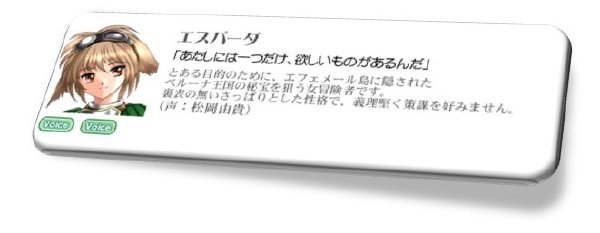 エスパーダ
「あたしには一つだけ、欲しいものがあるんだ」
とある目的のために、エフェメール島に隠された
ベルーナ王国の秘宝を狙う女冒険者です。
裏表の無いさっぱりとした性格で、義理堅く策謀を好みません。
(声：松岡由貴)
Voice Voice